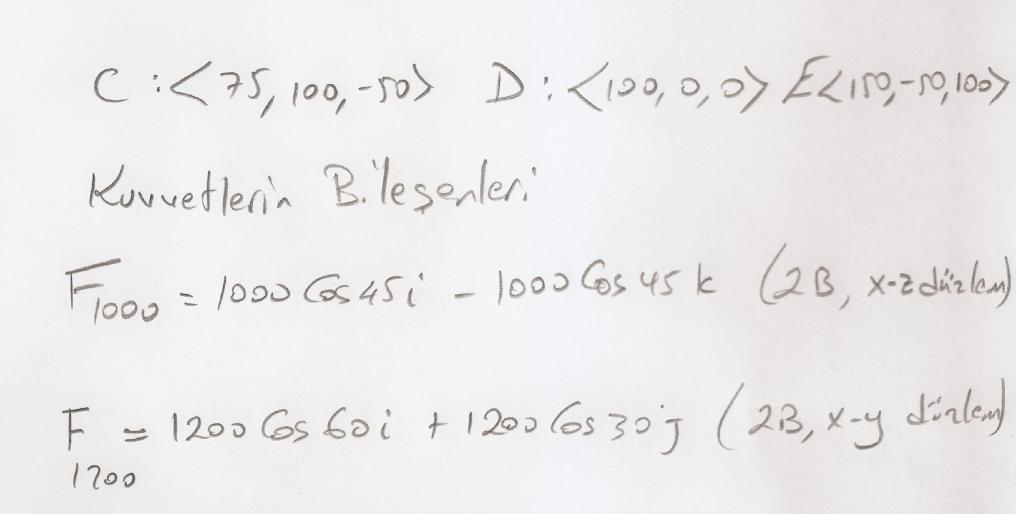 C:<75,100,-50> D:<100,0,0> E<150,-50,100>
Kuvvetlerin Bileşenleri
F1000 = 1000 Cos45i - 1000 Cos45k (2B, x-z düzlem)
F1200 = 1200 Cos60i + 1200 Cos30j (2B, x-y düzlem)